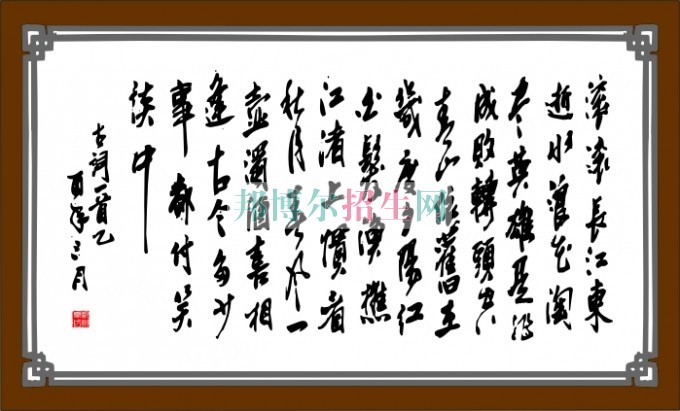 滚滚長江東
逝水浪花淘
尽英雄是非
成败轉頭空
青山依舊在
幾度夕陽红
白髮渔樵
江渚上慣看
秋月春风一
壶濁酒喜相
逢古今多少
事都付笑
谈中
古词一首乙
酉年月
邦博尔招生网